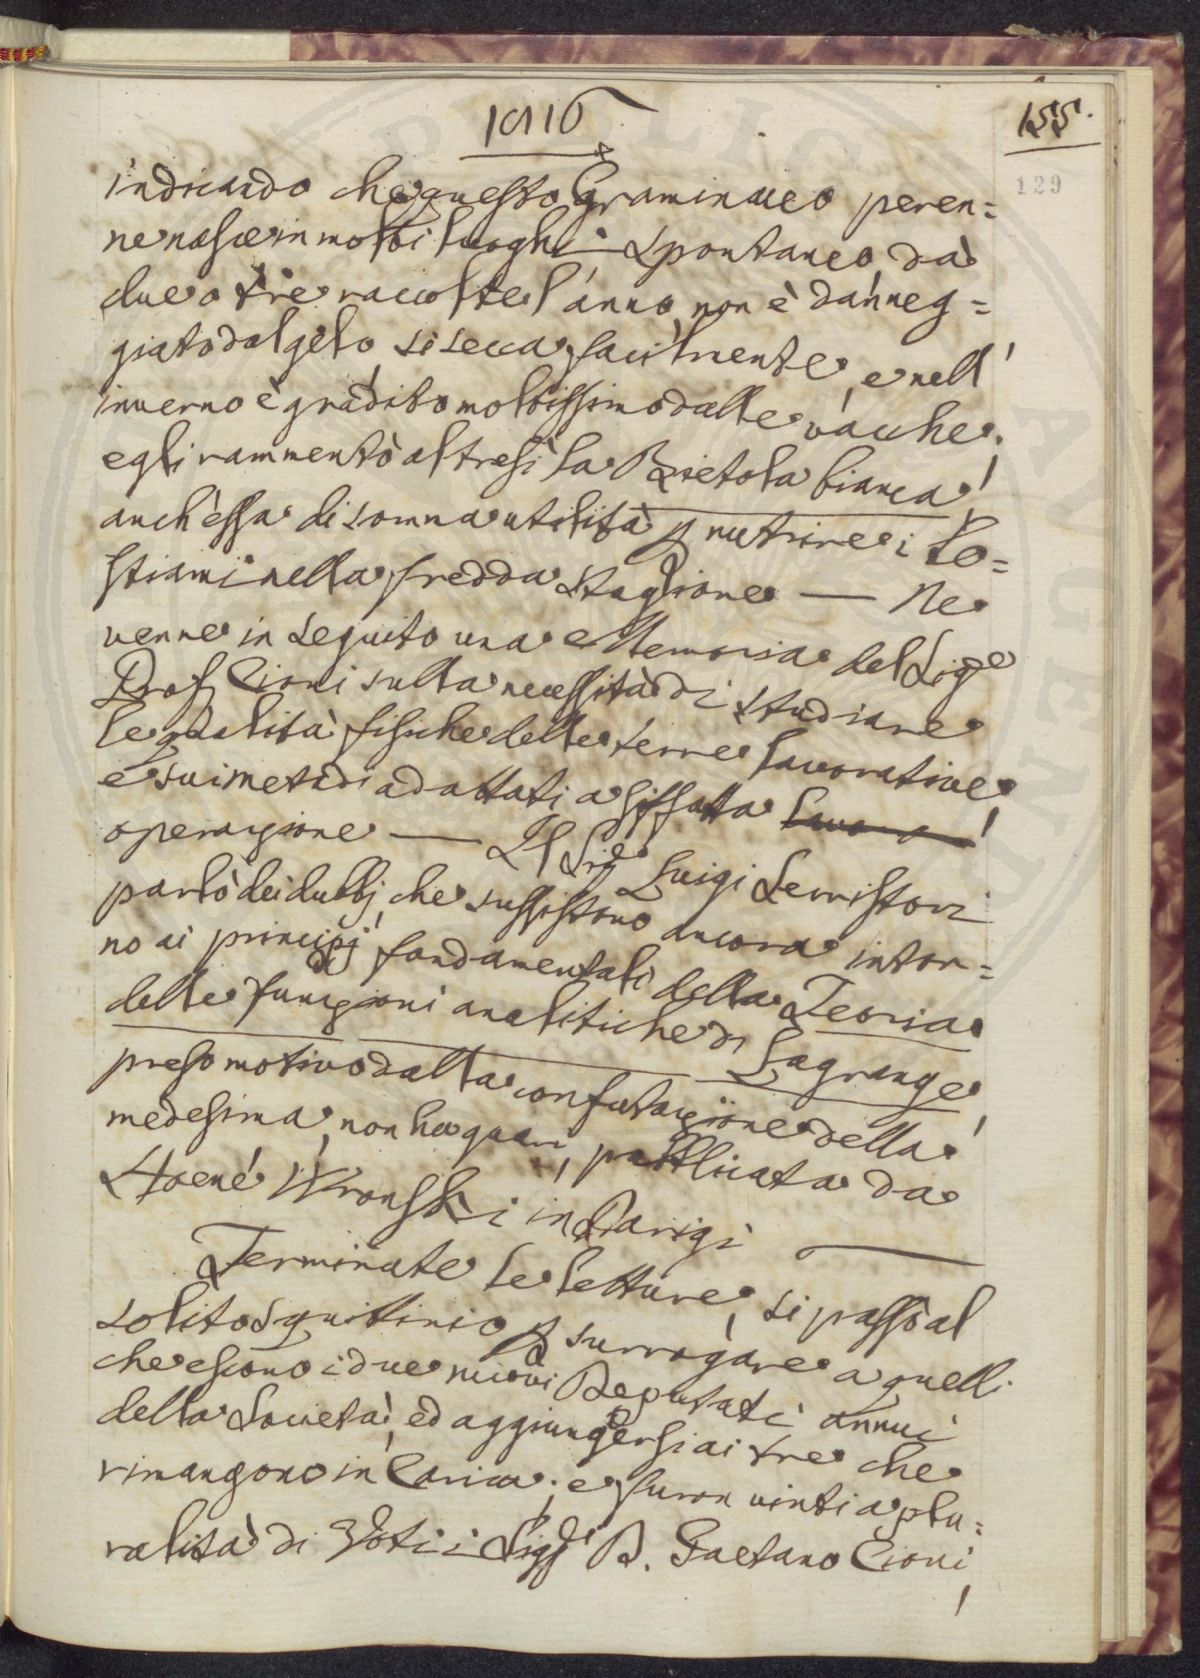 155.
129
indicando che questo Graminaceo peren=
ne nasce in molti luoghi spontaneo, dà
due o tre raccolte l'anno, non è danneg=
giato dal gelo, si secca facilmente, e nell'
inverno è gradito moltissimo dalle vacche;
egli rammentò altresì la Bietola bianca,
anch'essa di somma utilità p nutrire i be=
stiami nella fredda stagione — Ne
venne in seguito una Memoria del Sigre
Prof Cioni sulla necessità di studiare
le qualità fisiche delle terre lavorative,
e sui metodi adattati a siffatta
operazione — Il Sigre Luigi Serristori
parlò dei dubbj, che sussistono ancora intor=
no ai principj fondamentali della Teoria
delle funzioni analitiche di Lagrange,
preso motivo dalla confutazione della
medesima, non ha guari, pubblicata da
Hoené Wronski in Parigi —
Terminate le letture, si passò al
solito squittinio p surrogare a quelli
che escono i due nuovi Deputati annui
della Società, ed aggiungersi ai tre che
rimangono in Carica; e furon vinti a plu=
ralità di Voti i Sigri D. Gaetano Cioni,